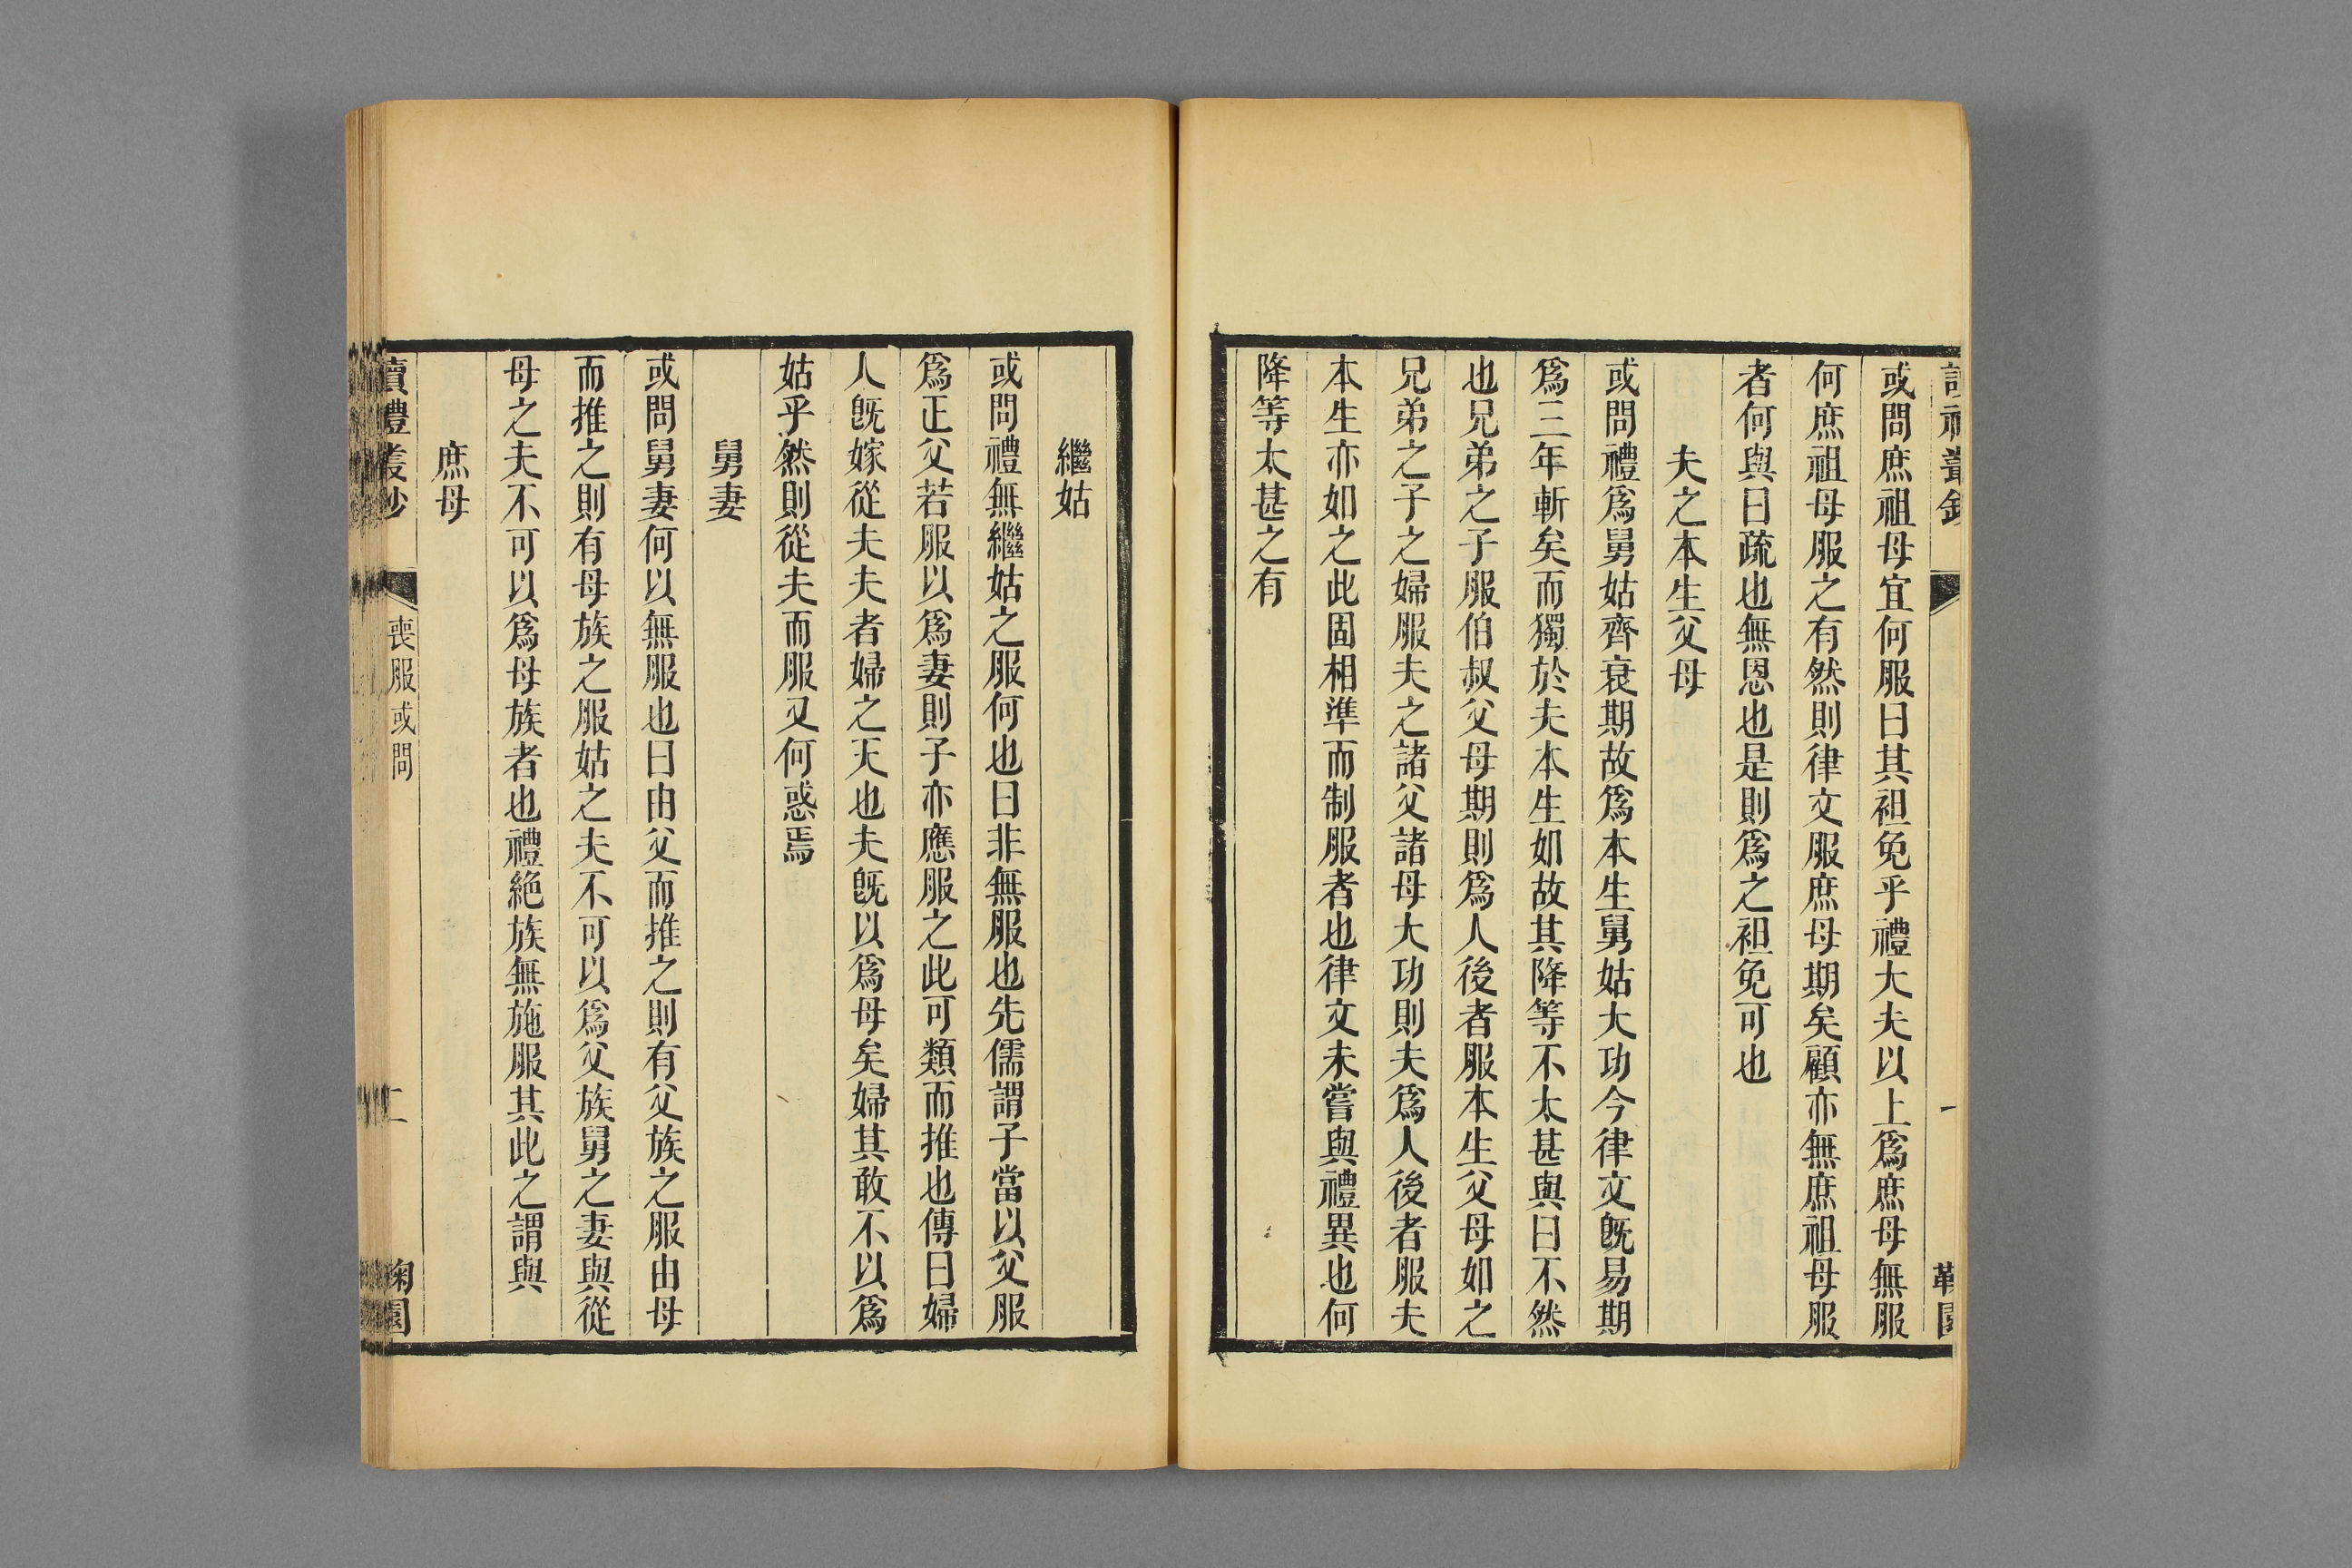 或問庶祖母宜何服曰其袒免乎禮大夫以上爲庶母無服
何庶祖母服之有然則律文服庶母期矣顧亦無庶祖母服
者何與曰疏也無恩也是則爲之袒免可也
夫之本生父母
或問禮爲舅姑齊衰期故爲本生舅姑大功今律文旣易期
爲三年斬矣而獨於夫本生如故其降等不太甚與曰不然
也兄弟之子服伯叔父母期則爲人後者服本生父母如之
兄弟之子之婦服夫之諸父諸母大功則夫爲人後者服夫
本生亦如之此固相準而制服者也律文未嘗與禮異也何
降等太甚之有
繼姑
或問禮無繼姑之服何也曰非無服也先儒謂子當以父服
爲正父若服以爲妻則子亦應服之此可類而推也傳曰婦
人旣嫁從夫夫者婦之天也夫旣以爲母矣婦其敢不以爲
姑乎然則從夫而服又何惑焉
舅妻
或問舅妻何以無服也曰由父而推之則有父族之服由母
而推之則有母族之服姑之夫不可以爲父族舅之妻與從
母之夫不可以爲母族者也禮絕族無施服其此之謂與
庶母
讀禮叢鈔
喪服或問
二
鞠園